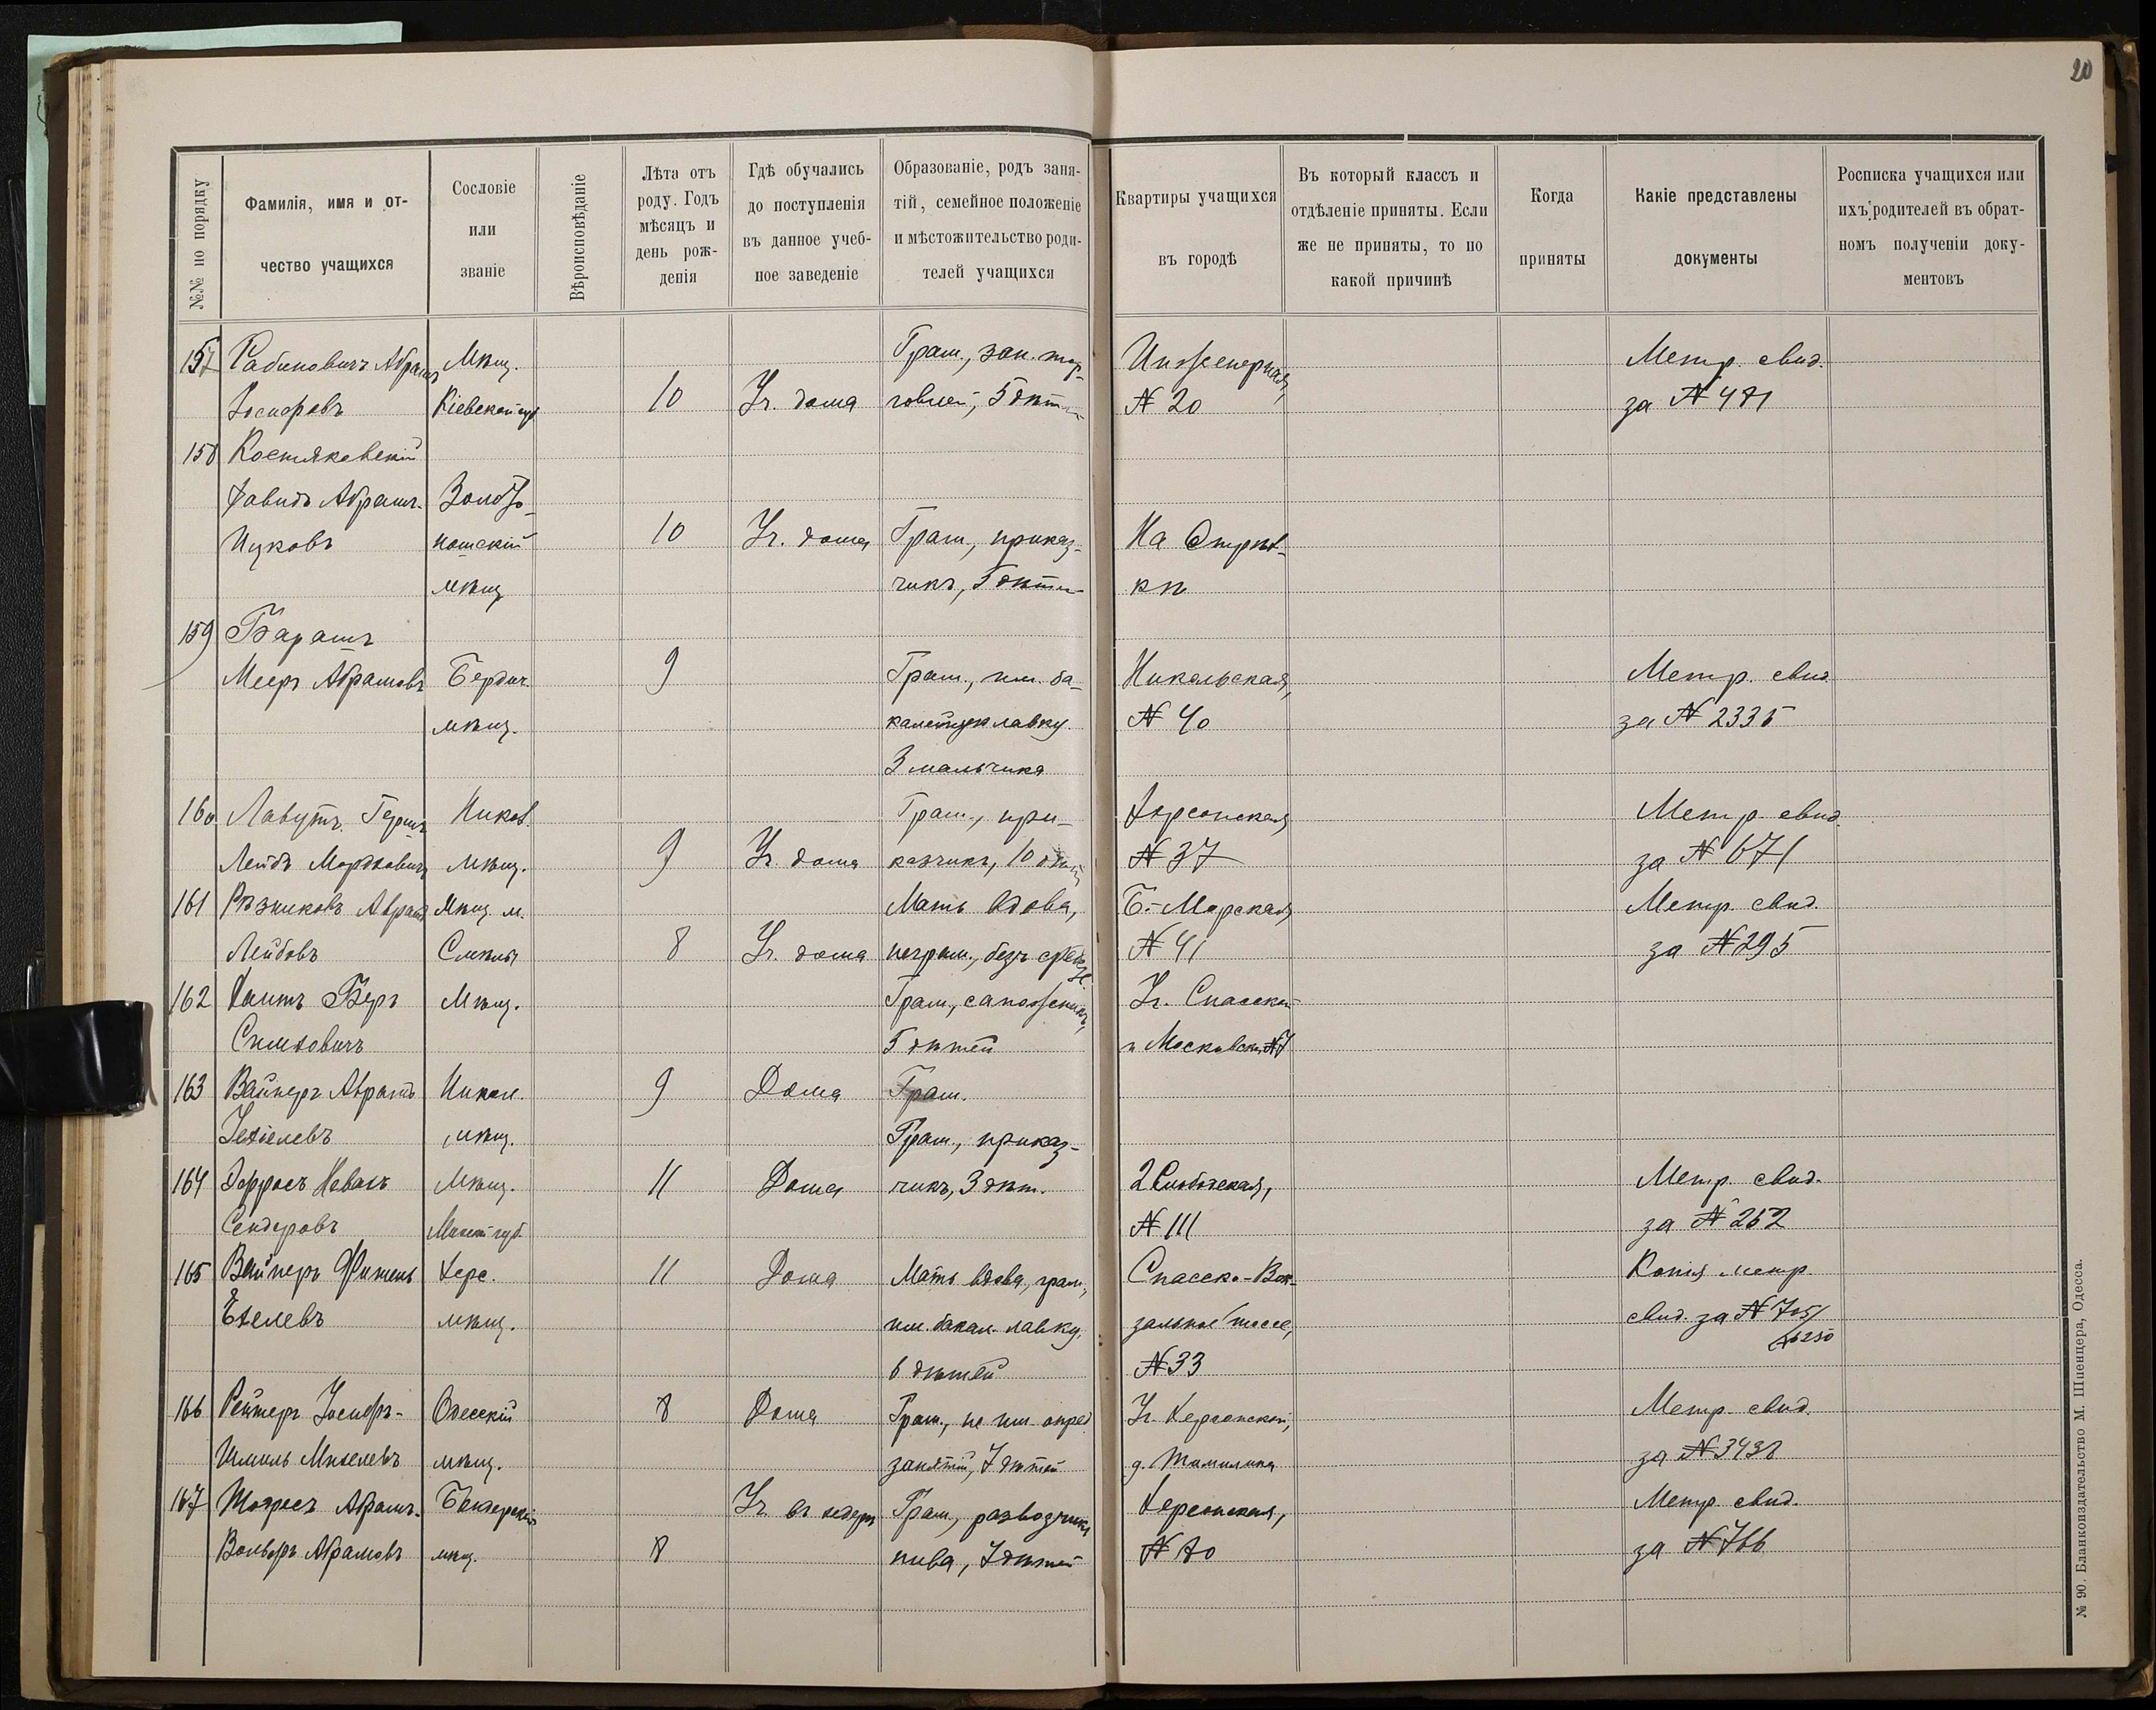 20
№№ по порядку
Фамилія, имя и от-
чество учащихся
Сословіе
или
званіе
Вѣроисповѣданіе
Лѣта отъ
роду. Годъ
мѣсяцъ и
день рож-
денія
Гдѣ обучались
до поступленія
въ данное учеб-
ное заведеніе
Образованіе, родъ заня-
тій, семейное положеніе
и мѣстожительство роди-
телей учащихся
Квартиры учащихся
въ городѣ
Въ который классъ и
отдѣленіе приняты. Если
же не приняты, то по
какой причинѣ
Когда
приняты
Какіе представлены
документы
Росписка учащихся или
ихъ родителей въ обрат-
номъ полученіи доку-
ментовъ
157 Рабиновичъ Абрамъ Мѣщ. Грам., зан. тор- Инженерная, Метр. свид.
Іосифовъ Кіевской губ. 10 Уч. дома говлей, 5 дѣтей № 20 за № 481
158 Костяковскій
Давидъ Абрам- Золото-
Ицковъ ношскій 10 Уч. дома Грам., приказ- На Стрѣл-
мѣщ чикъ, 5 дѣтей кѣ
159 Барашъ
Мееръ Абрамовъ Бердич. 9 Грам., им. ба- Никольская, Метр. свид.
мѣщ. калейную лавку. № 40 за № 2335
3 мальчика
160 Лавутъ Гершъ Никол. Грам., при- Херсонская Метр. свид.
Лейбъ Мордковичъ мѣщ. 9 Уч. дома казчикъ, 10 дѣтей № 37 за № 671
161 Рѣзниковъ Аврамъ Мѣщ. м. Мать вдова, Б.-Морская, Метр. свид.
Лейбовъ Смѣлы 8 Уч. дома неграм., безъ средс. № 41 за № 295
162 Хаитъ Беръ Мѣщ. Грам., сапожникъ, Уг. Спасской
Симховичъ 5 дѣтей и Московской № 7
163 Вайнеръ Аврамъ Никол. 9 Дома Грам.
Іехіелевъ мѣщ. Грам., приказ-
164 Эфросъ Невахъ Мѣщ. 11 Дома чикъ, 3 дѣт. 2 Слободская, Метр. свид.
Сендеровъ Минской губ. № 111 за № 252
165 Вайнеръ Фишель Херс. 11 Дома Мать вдова, грам., Спасско-Вок- Копія метр.
Ехелевъ мѣщ. им. бакал. лавку, зальное шоссе, свид. за № 705/
6250
6 дѣтей № 33
166 Рейтеръ Іосифъ- Одесскій 8 Дома Грам., не им. опред. Уг. Херсонской, Метр. свид.
Шмиль Михелевъ мѣщ. занятій, 7 дѣтей д. за № 3438
167 Абрамъ- Бендерскій Уч. въ хедерѣ Грам., развозчикъ Херсонская, Метр. свид.
Вольфъ Абрамовъ мѣщ. 8 пива, 7 дѣтей № 80 за № 766
№ 90. Бланкоиздательство М. Шпенцера, Одесса.